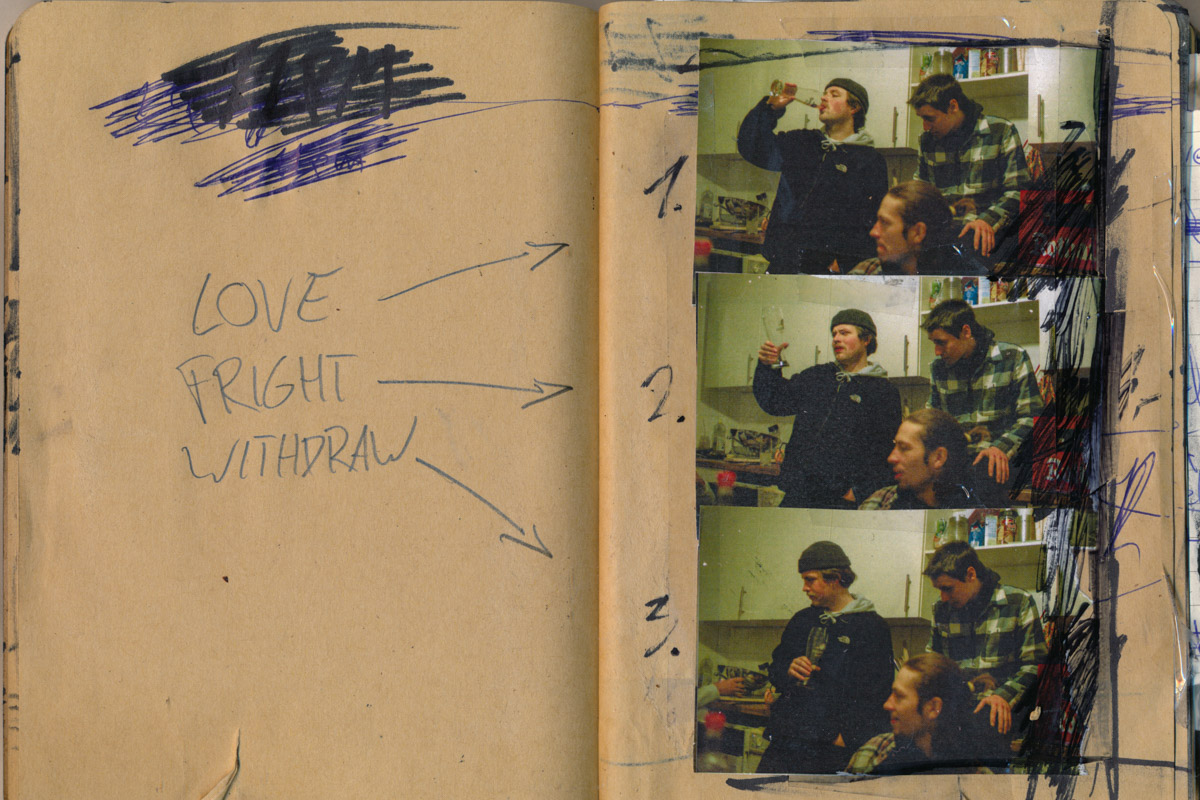 LOVE
FRIGHT
WITHDRAW
1.
2.
3.